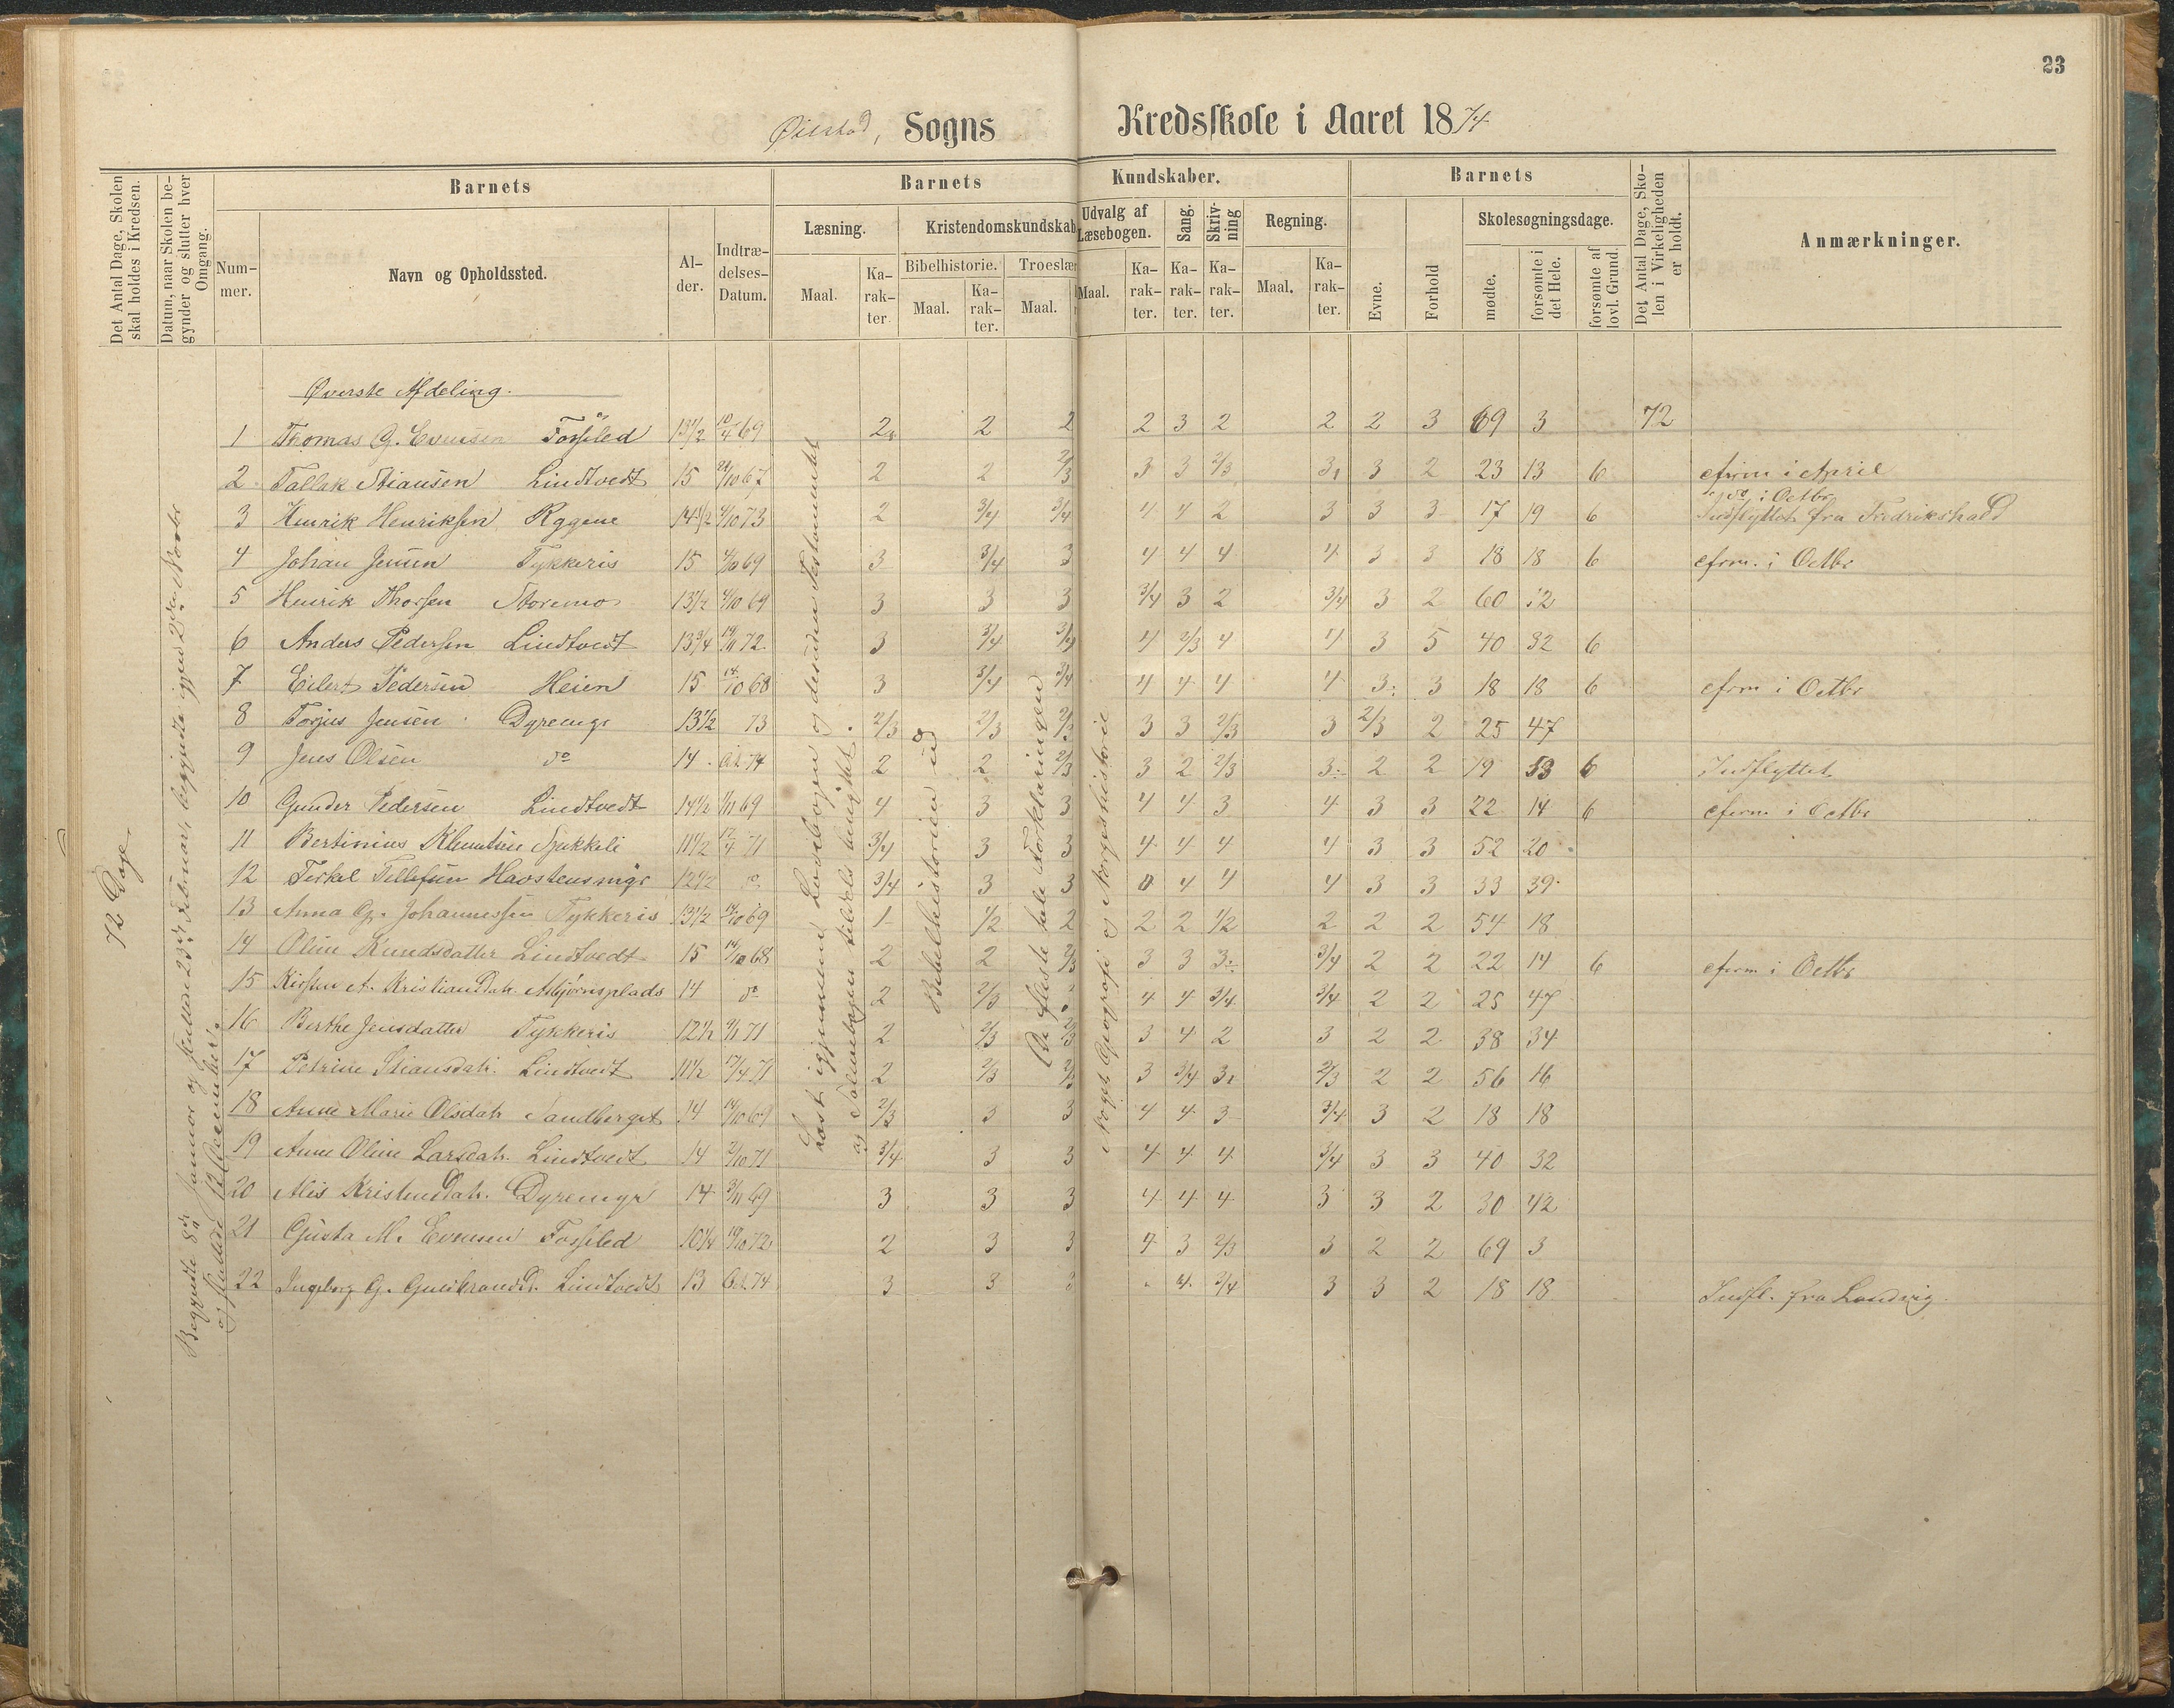 23
Øiestad, Sogns Kredsskole i Aaret 1874
Det Antal Dage, Skolen skal holdes i Kredsen.
Datum, naar Skolen begynder og slutter hver Omgang.
Barnets
Nummer.
Navn og Opholdssted.
Alder.
Indtrædelses-Datum.
Barnets Kundskaber.
Læsning.
Maal.
Karakter.
Kristendomskundskab
Bibelhistorie.
Maal.
Karakter.
Troeslær
Maal.
Udvalg af Læsebogen.
Maal.
Karakter.
Sang.
Karakter.
Skrivning
Karakter.
Regning.
Maal.
Karakter.
Barnets
Evne.
Forhold
Skolesøgningsdage.
mødte.
forsømte i det Hele.
forsømte af lovl. Grund.
Det Antal Dage, Skolen i Virkeligheden er holdt.
Anmærkninger.
72 Dage
Begyndte 8de Januar og sluttede 23de Februar, begyndte igjen 2den Novbr
og sluttede 12 December.
Læst igjennem Læsebogen og desuden Testamentet
og Salmebogen tildels benyttet.
Bibelhistorien ud
De fleste hele Forklaringen
Noget Geografi og Norgeshistorie
Øverste Afdeling.
1 Thomas G. Evensen Fosseled 13 1/2 10/4 69 2 2 2 2 3 2 2 2 3 69 3 72
2 Tallak Stiansen Lindtvedt 15 21/10 67 2 2 2/3 3 3 2/3 3 3 2 23 13 6 cfirm i April
3 Henrik Henriksen Rygene 14 1/2 4/10 73 2 3/4 3/4 4 4 2 3 3 3 17 19 6 do i Octbr Indflyttet fra Fredrikshald
4 Johan Jensen Tykkeris 15 4/10 69 3 3/4 3 4 4 4 4 3 3 18 18 6 cfrm. i Octbr
5 Henrik Thorsen Storemo 13 1/2 4/10 69 3 3 3 3/4 3 2 3/4 3 2 60 12
6 Anders Pedersen Lindtvedt 13 3/4 14/11 72 3 3/4 3/4 4 2/3 4 4 3 5 40 32 6
7 Eilert Pedersen Heien 15 14/10 68 3 3/4 3/4 4 4 4 4 3 3 18 18 6 cfrm i Octbr
8 Torjus Jensen Dyremyr 13 1/2 73 2/3 2/3 2/3 3 3 2/3 3 2/3 2 25 47
9 Jens Olsen do 14 74 2 2 2/3 3 2 2/3 3 2 2 19 53 6 Indflyttet
10 Gunder Pedersen Lindtvedt 14 1/2 1/11 69 4 3 3 4 4 3 4 3 3 22 14 6 cfirm i Octbr
11 Bertinius Klemetsen 11 1/2 12/4 71 3/4 3 3 4 4 4 4 3 3 52 20
12 Terkel Tellefsen Havstensmyr 12 1/2 do 3/4 3 3 4 4 4 3 3 33 39
13 Anna G. Johannessen Tykkeris 13 1/2 14/10 69 1 1/2 2 2 2 1/2 2 2 2 54 18
14 Oline Knudsdatter Lindtvedt 15 14/10 68 2 2 2/3 3 3 3 3/4 2 2 22 14 6 cfirm i Octbr
15 Kirsten A. Kristiansdatr. Asbjørnsplads 14 do 2 2/3 4 4 3/4 3/4 2 2 25 47
16 Berthe Jensdatter Tykkeris 12 1/2 71 2 2/3 2/3 3 4 2 3 2 2 38 34
17 Petrine Stiansdatr. Lindtvedt 11 1/2 17/4 71 2 2/3 2/3 3 3/4 3 2/3 2 2 56 16
18 Anne Marie Olsdatr Sandberget 14 14/10 69 2/3 3 3 4 4 3 3/4 3 2 18 18
19 Anne Oline Larsdatr. Lindtvedt 14 2/10 71 3/4 3 3 4 4 4 3/4 3 3 40 32
20 Alis Kristendatr. Dyremyr 14 3/11 69 3 3 3 4 4 4 3 3 2 30 42
21 Gusta M. Evensen Fossled 10 1/4 14/10 72 2 3 3 4 3 2/3 3 2 2 69 3
22 Ingeborg G. GulbrandsD. Lindtvedt 13 74 3 3 3 4 3/4 3 3 2 18 18 Indfl. fra Landvig.